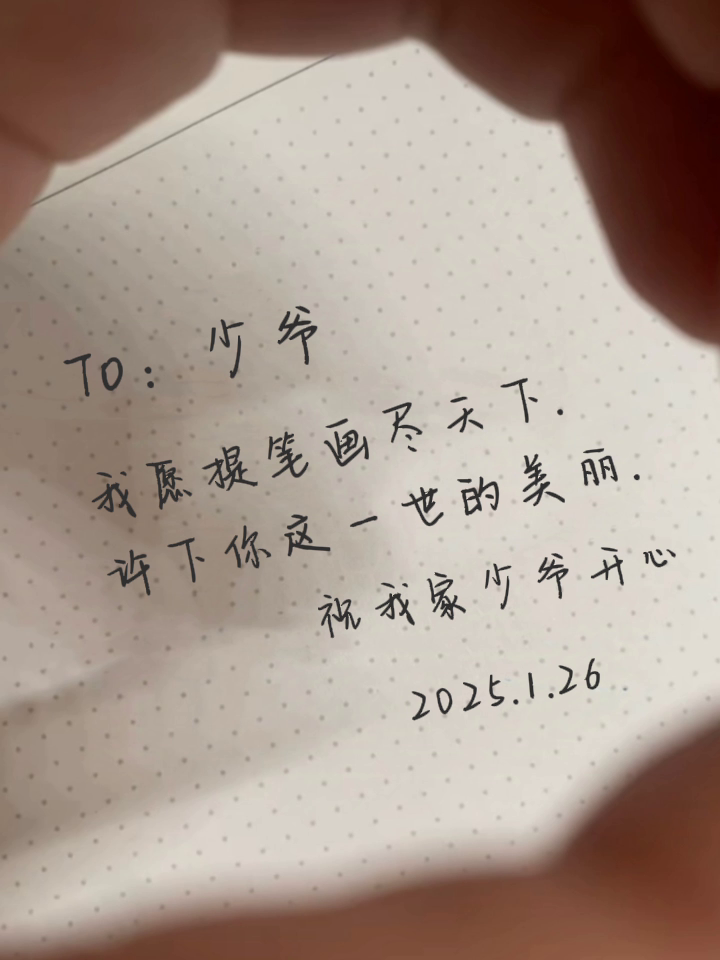 TO: 少爷
我愿提笔画尽天下.
许下你这一世的美丽.
祝我家少爷开心
2025.1.26